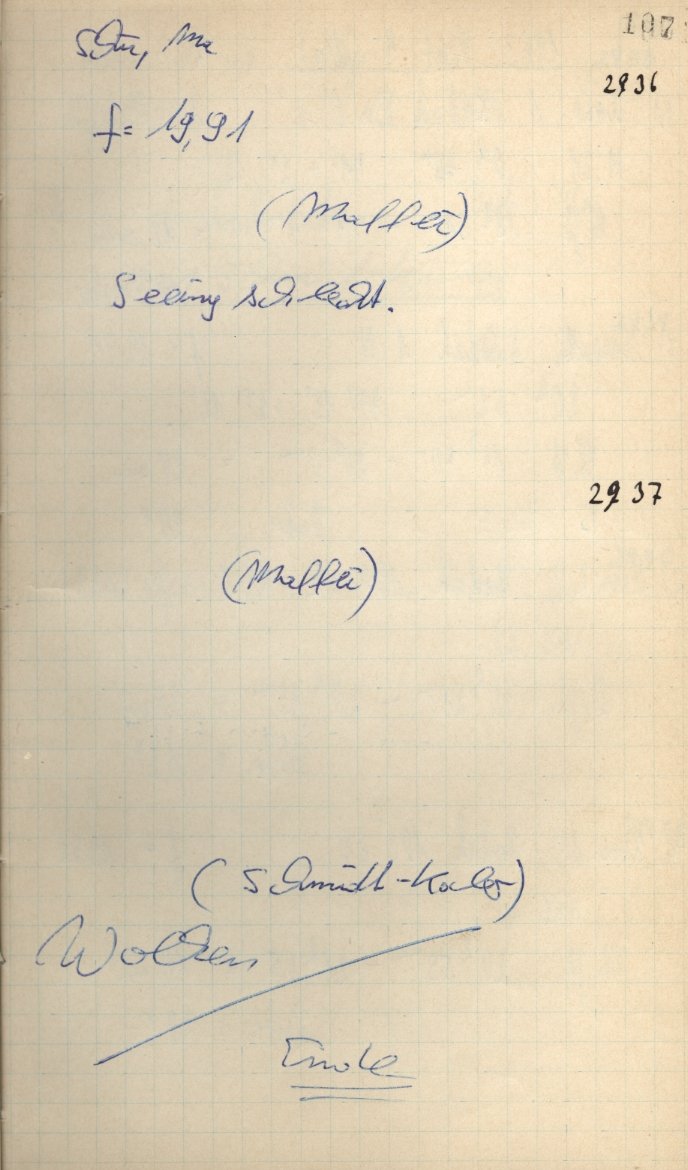 107
Schm, Ma
2936
f= 19,91
(Maffei)
Seeing schlecht.
2937
(Maffei)
(Schmidt-Kaler)
Wolken
Ende